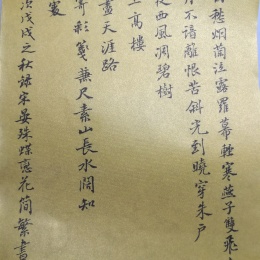 愁烟蘭泣露羅幕輕寒燕子雙飛
月不諳離恨苦斜光到曉穿朱户
夜西風凋碧樹
上高樓
盡天涯路
寄彩箋兼尺素山長水闊知
處
次戊戌之秋録宋晏殊蝶戀花简繁書